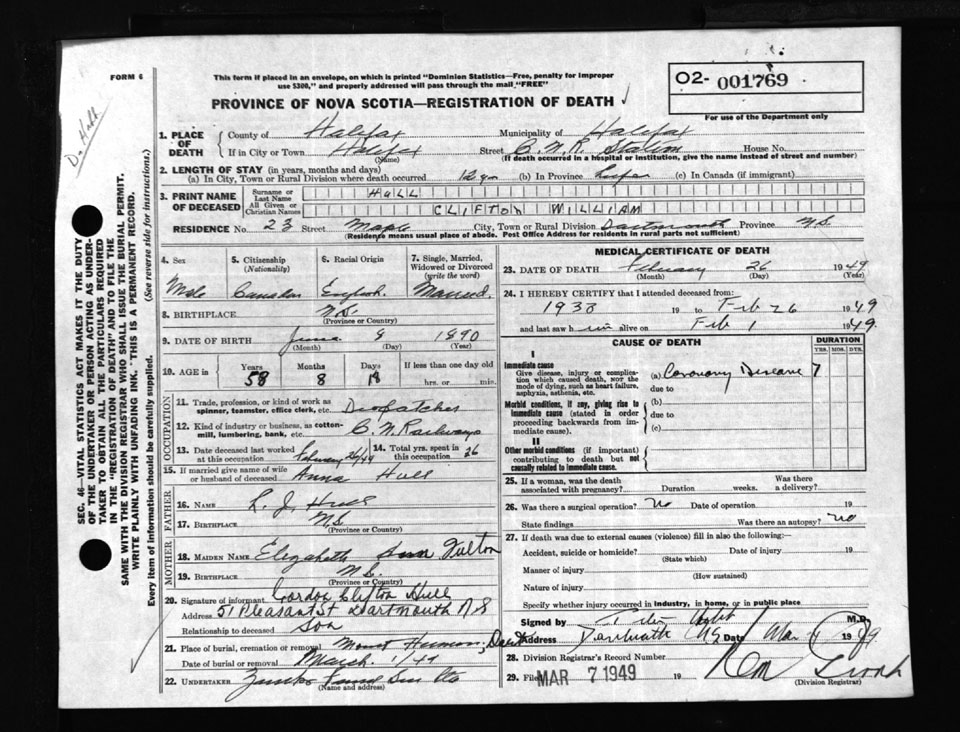 FORM 6
This form if placed in an envelope, on which is printed "Dominion Statistics—Free, penalty for improper
use $300," and properly addressed will pass through the mail "FREE"
O2- 001769
For use of the Department only
PROVINCE OF NOVA SCOTIA—REGISTRATION OF DEATH
1. PLACE OF DEATH County of Halifax Municipality of Halifax
If in City or Town Halifax (Name) Street C.N.R. Station House No.
(If death occurred in a hospital or institution, give the name instead of street and number)
2. LENGTH OF STAY (in years, months and days)
(a) In City, Town or Rural Division where death occurred 12 yrs (b) In Province Life (c) In Canada (if immigrant)
3. PRINT NAME OF DECEASED Surname or Last Name HULL
All Given or Christian Names CLIFTON WILLIAM
RESIDENCE No. 23 Street Maple City, Town or Rural Division Dartmouth Province N.S.
(Residence means usual place of abode. Post Office Address for residents in rural parts not sufficient)
4. Sex Male
5. Citizenship (Nationality) Canadian
6. Racial Origin English
7. Single, Married, Widowed or Divorced (write the word) Married
8. BIRTHPLACE N.S. (Province or Country)
9. DATE OF BIRTH June 8 1890
(Month) (Day) (Year)
10. AGE in Years 58 Months 8 Days 18 If less than one day old hrs. or min.
OCCUPATION
11. Trade, profession, or kind of work as spinner, teamster, office clerk, etc. Dispatcher
12. Kind of industry or business, as cotton-mill, lumbering, bank, etc. C.N. Railways
13. Date deceased last worked at this occupation February 26/49 14. Total yrs. spent in this occupation 26
15. If married give name of wife or husband of deceased Anna Hull
FATHER
16. Name L. J. Hull
17. BIRTHPLACE N.S. (Province or Country)
MOTHER
18. MAIDEN NAME Elizabeth Fulton
19. BIRTHPLACE N.S. (Province or Country)
20. Signature of informant Gordon Clifton Hull
Address 51 Pleasant St Dartmouth N S
Relationship to deceased Son
21. Place of burial, cremation or removal Mount Hermon, Dart
Date of burial or removal March 1/49
22. UNDERTAKER
(Name and address)
MEDICAL CERTIFICATE OF DEATH
23. DATE OF DEATH February 26 1949
(Month) (Day)
24. I HEREBY CERTIFY that I attended deceased from:
1938 19 to Feb 26 1949
and last saw him alive on Feb 1 1949
CAUSE OF DEATH
DURATION
YRS. MOS. DYS.
I
Immediate cause
Give disease, injury or complication which caused death, NOT the mode of dying, such as heart failure, asphyxia, asthenia, etc.
(a) Coronary Disease 7
due to
Morbid conditions, if any, giving rise to immediate cause (stated in order proceeding backwards from immediate cause).
(b)
due to
(c)
II
Other morbid conditions (if important) contributing to death but not causally related to immediate cause.
25. If a woman, was the death associated with pregnancy? Duration weeks. Was there a delivery?
26. Was there a surgical operation? No Date of operation 19
State findings Was there an autopsy? No
27. If death was due to external causes (violence) fill in also the following:—
Accident, suicide or homicide? Date of injury 19
(State which)
Manner of injury
(How sustained)
Nature of injury
Specify whether injury occurred in industry, in home, or in public place
Signed by M.D.
Address Dartmouth NS Date Mar 1949
28. Division Registrar's Record Number
29. Filed MAR 7 1949 19
(Division Registrar)
SEC. 46—VITAL STATISTICS ACT MAKES IT THE DUTY
OF THE UNDERTAKER OR PERSON ACTING AS UNDER-
TAKER TO OBTAIN ALL THE PARTICULARS REQUIRED
IN THE "REGISTRATION OF DEATH" AND TO FILE THE
SAME WITH THE DIVISION REGISTRAR WHO SHALL ISSUE THE BURIAL PERMIT.
WRITE PLAINLY WITH UNFADING INK. THIS IS A PERMANENT RECORD.
Every item of information should be carefully supplied. (See reverse side for instructions.)